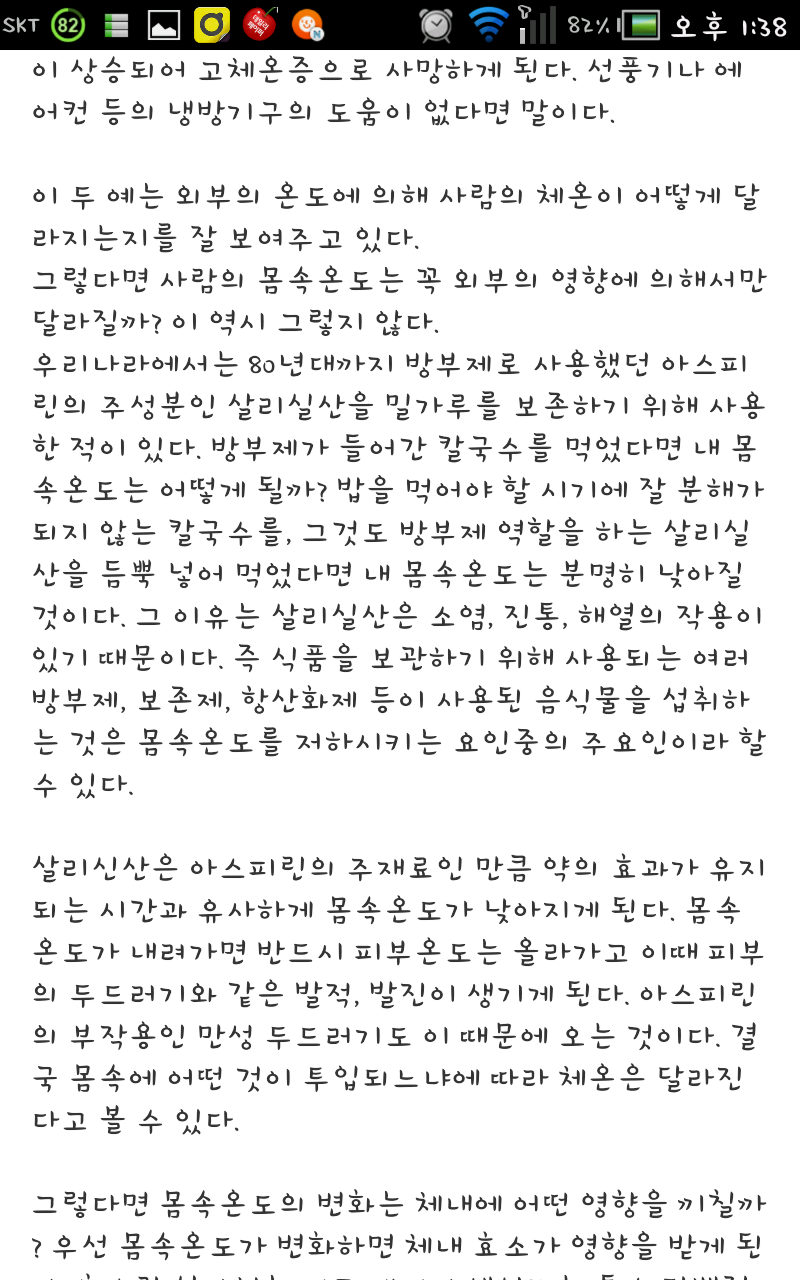 SKT 82 82% 오후 1:38
이 상승되어 고체온증으로 사망하게 된다. 선풍기나 에
어컨 등의 냉방기구의 도움이 없다면 말이다.
이 두 예는 외부의 온도에 의해 사람의 체온이 어떻게 달
라지는지를 잘 보여주고 있다.
그렇다면 사람의 몸속온도는 꼭 외부의 영향에 의해서만
달라질까? 이 역시 그렇지 않다.
우리나라에서는 80년대까지 방부제로 사용했던 아스피
린의 주성분인 살리실산을 밀가루를 보존하기 위해 사용
한 적이 있다. 방부제가 들어간 칼국수를 먹었다면 내 몸
속온도는 어떻게 될까? 밥을 먹어야 할 시기에 잘 분해가
되지 않는 칼국수를, 그것도 방부제 역할을 하는 살리실
산을 듬뿍 넣어 먹었다면 내 몸속온도는 분명히 낮아질
것이다. 그 이유는 살리실산은 소염, 진통, 해열의 작용이
있기 때문이다. 즉 식품을 보관하기 위해 사용되는 여러
방부제, 보존제, 항산화제 등이 사용된 음식물을 섭취하
는 것은 몸속온도를 저하시키는 요인중의 주요인이라 할
수 있다.
살리신산은 아스피린의 주재료인 만큼 약의 효과가 유지
되는 시간과 유사하게 몸속온도가 낮아지게 된다. 몸속
온도가 내려가면 반드시 피부온도는 올라가고 이때 피부
의 두드러기와 같은 발적, 발진이 생기게 된다. 아스피린
의 부작용인 만성 두드러기도 이 때문에 오는 것이다. 결
국 몸속에 어떤 것이 투입되느냐에 따라 체온은 달라진
다고 볼 수 있다.
그렇다면 몸속온도의 변화는 체내에 어떤 영향을 끼칠까
? 우선 몸속온도가 변화하면 체내 효소가 영향을 받게 된